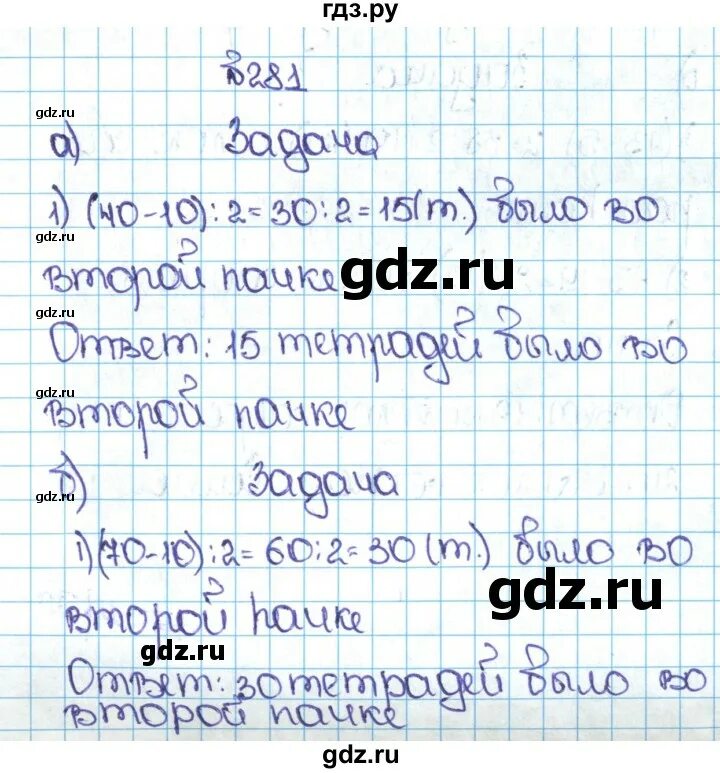 гдз.ру
№281
gdz.ru
а) Задача
1) (40-10):2=30:2=15(т.) было во
gdz.ru
второй пачке
gdz.ru
gdz.ru
Ответ: 15 тетрадей было во
gdz.ru
второй пачке
gdz.ru
б) Задача
1)(70-10):2=60:2=30(т.) было во
gdz.ru
второй пачке
gdz.ru
Ответ: 30 тетрадей было во
второй пачке
gdz.ru